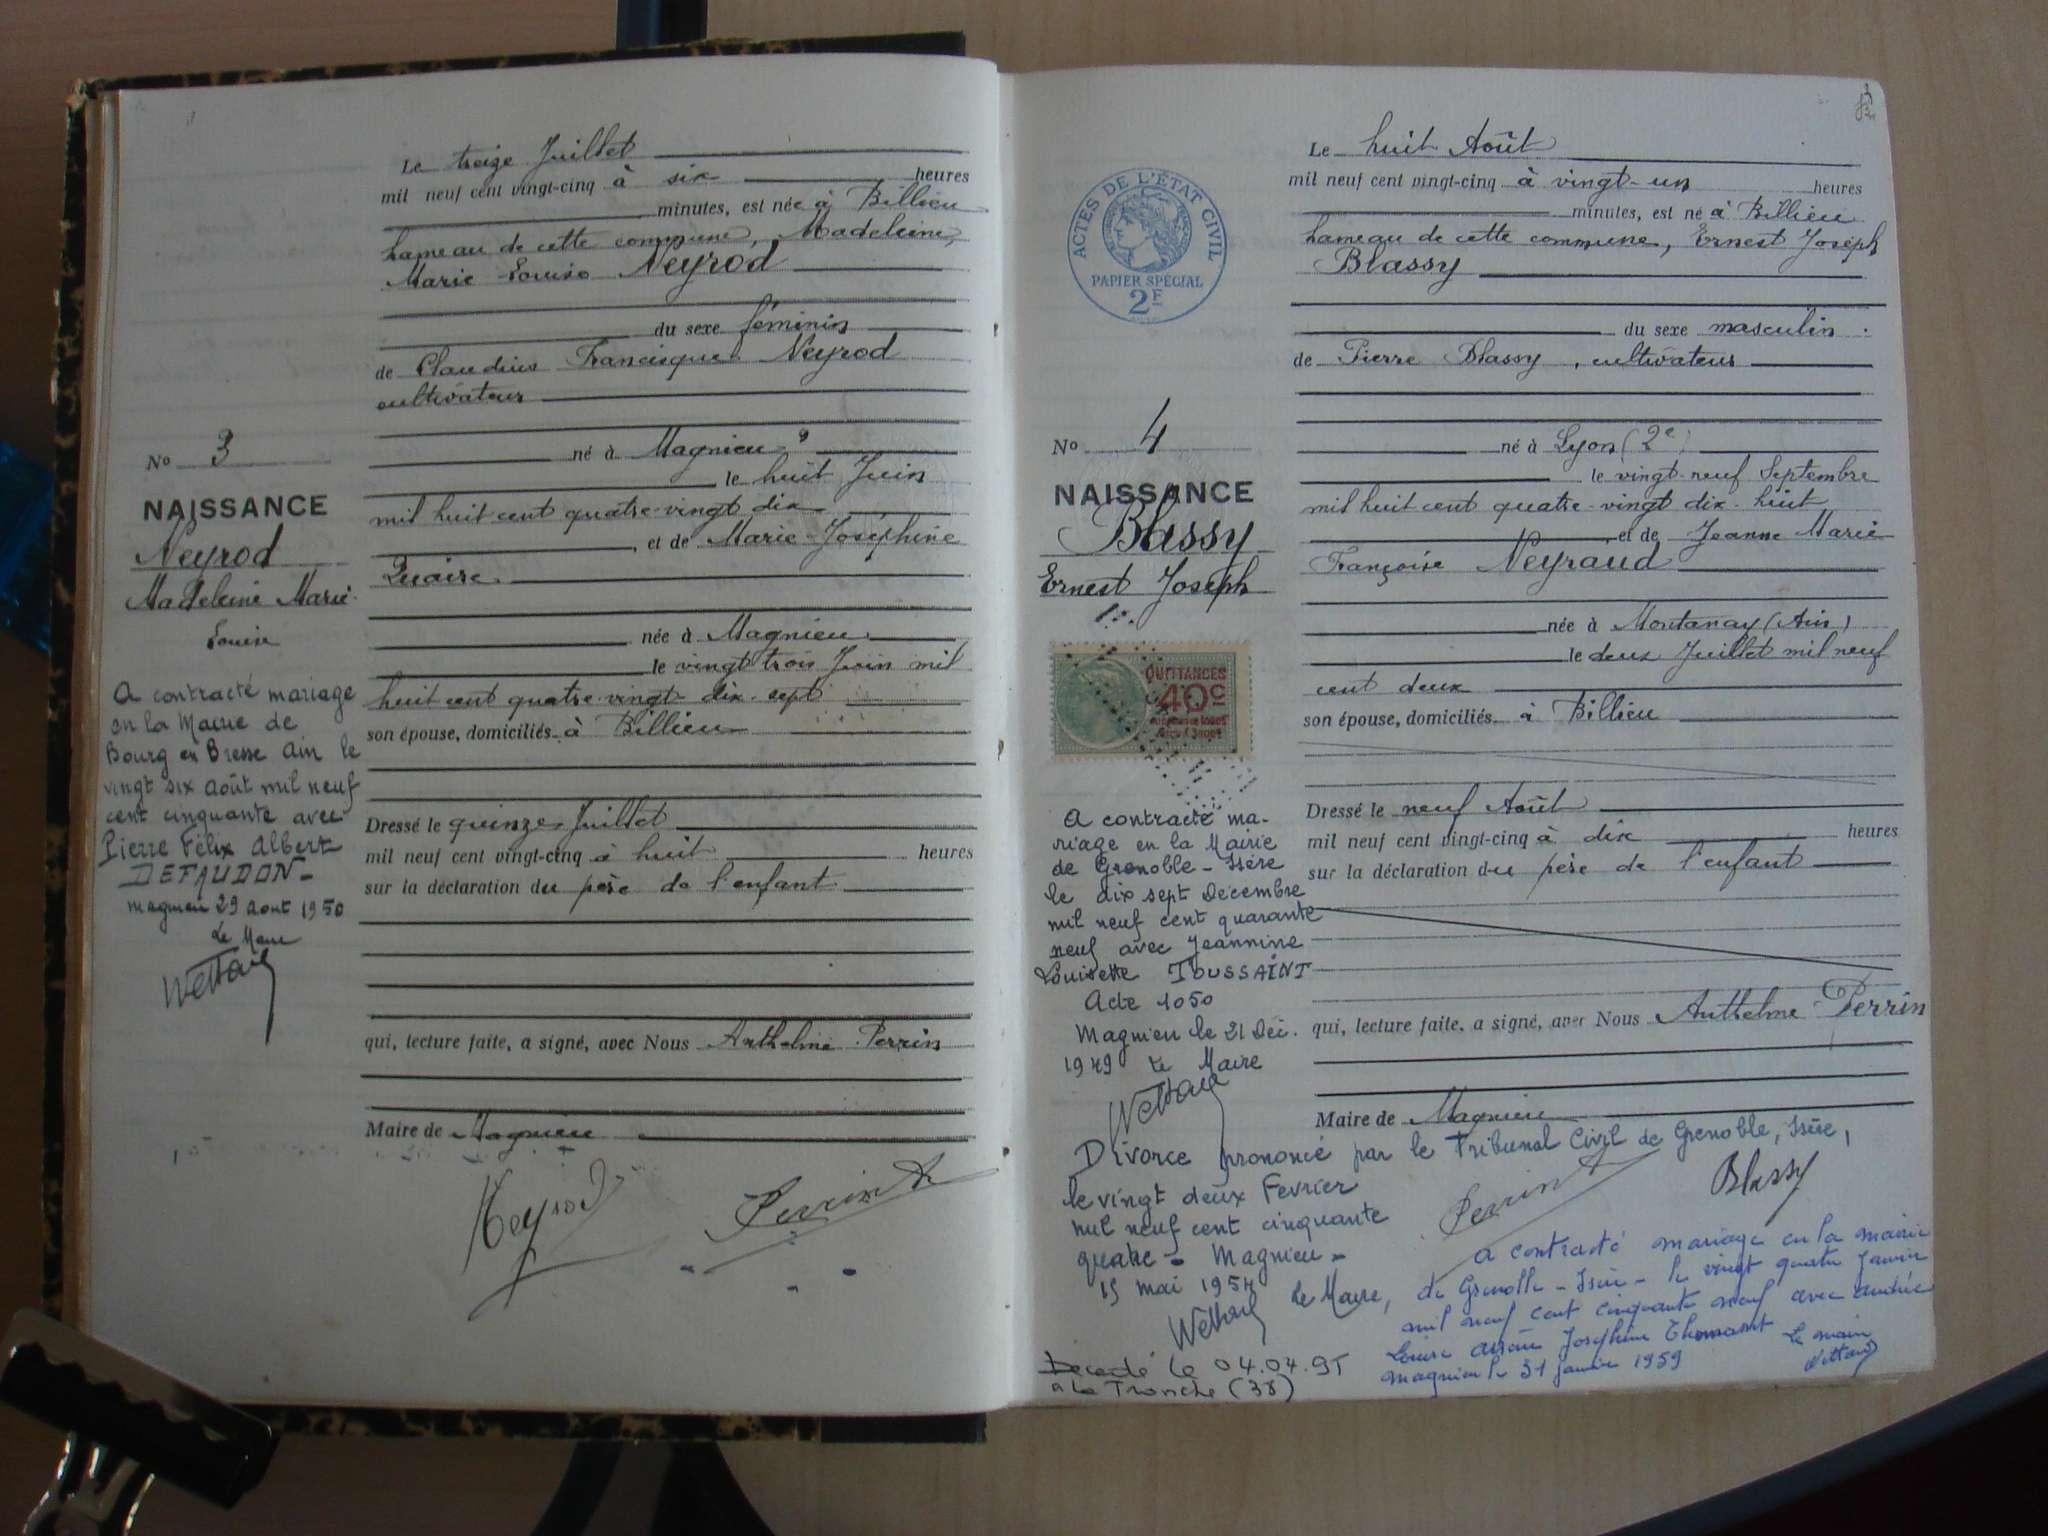 Le treize Juillet
mil neuf cent vingt-cinq à six heures
minutes, est née à Billieu
hameau de cette commune, Madeleine,
Marie Louise Neyrod
du sexe féminin
de Claudius Francisque Neyrod
cultivateur
né à Magnieu
le huit Juin
mil huit cent quatre-vingt dix
, et de Marie-Joséphine
Quaire
née à Magnieu
le vingt trois Juin mil
huit cent quatre-vingt dix-sept
son épouse, domiciliés à Billieu
Dressé le quinze Juillet
mil neuf cent vingt-cinq à huit heures
sur la déclaration du père de l'enfant
qui, lecture faite, a signé, avec Nous Anthelme Perrin
Maire de Magnieu
Neyrod
Perrin A
No 3
NAISSANCE
Neyrod
Madeleine Marie-
Louise
A contracté mariage
en la Mairie de
Bourg en Bresse Ain le
vingt six Août mil neuf
cent cinquante avec
Pierre Félix Albert
DEFAUDON -
Magnieu 29 Aout 1950
Le Maire
ACTES DE L'ÉTAT CIVIL
PAPIER SPÉCIAL
2F
No 4
NAISSANCE
Blassy
Ernest Joseph
QUITTANCES
40c
A contracté ma-
riage en la Mairie
de Grenoble - Isère
le dix sept Décembre
mil neuf cent quarante
neuf avec Jeannine
Louisette TOUSSAINT
Acte 1050
Magnieu le 21 Déc.
1949 Le Maire
Le huit Août
mil neuf cent vingt-cinq à vingt-un heures
minutes, est né à Billieu
hameau de cette commune, Ernest Joseph
Blassy
du sexe masculin.
de Pierre Blassy, cultivateur
né à Lyon (2e)
le vingt-neuf Septembre
mil huit cent quatre-vingt dix-huit
et de Jeanne Marie
Françoise Neyraud
née à Montanay (Ain)
le deux Juillet mil neuf
cent deux
son épouse, domiciliés à Billieu
Dressé le neuf Août
mil neuf cent vingt-cinq à dix heures
sur la déclaration du père de l'enfant
qui, lecture faite, a signé, avec Nous Anthelme Perrin
Maire de Magnieu
Divorce prononcé par le Tribunal Civil de Grenoble, Isère,
le vingt deux Fevrier
mil neuf cent cinquante
quatre - Magnieu -
15 mai 1954 Le Maire,
Perrin A
Blassy
a contracté mariage en la mairie
de Grenoble - Isère - le vingt quatre Janvier
mil neuf cent cinquante neuf avec Andrée
Louise Joséphine Le Maire
Magnieu le 31 Janvier 1959
Decedé le 04.04.95
a La Tronche (38)